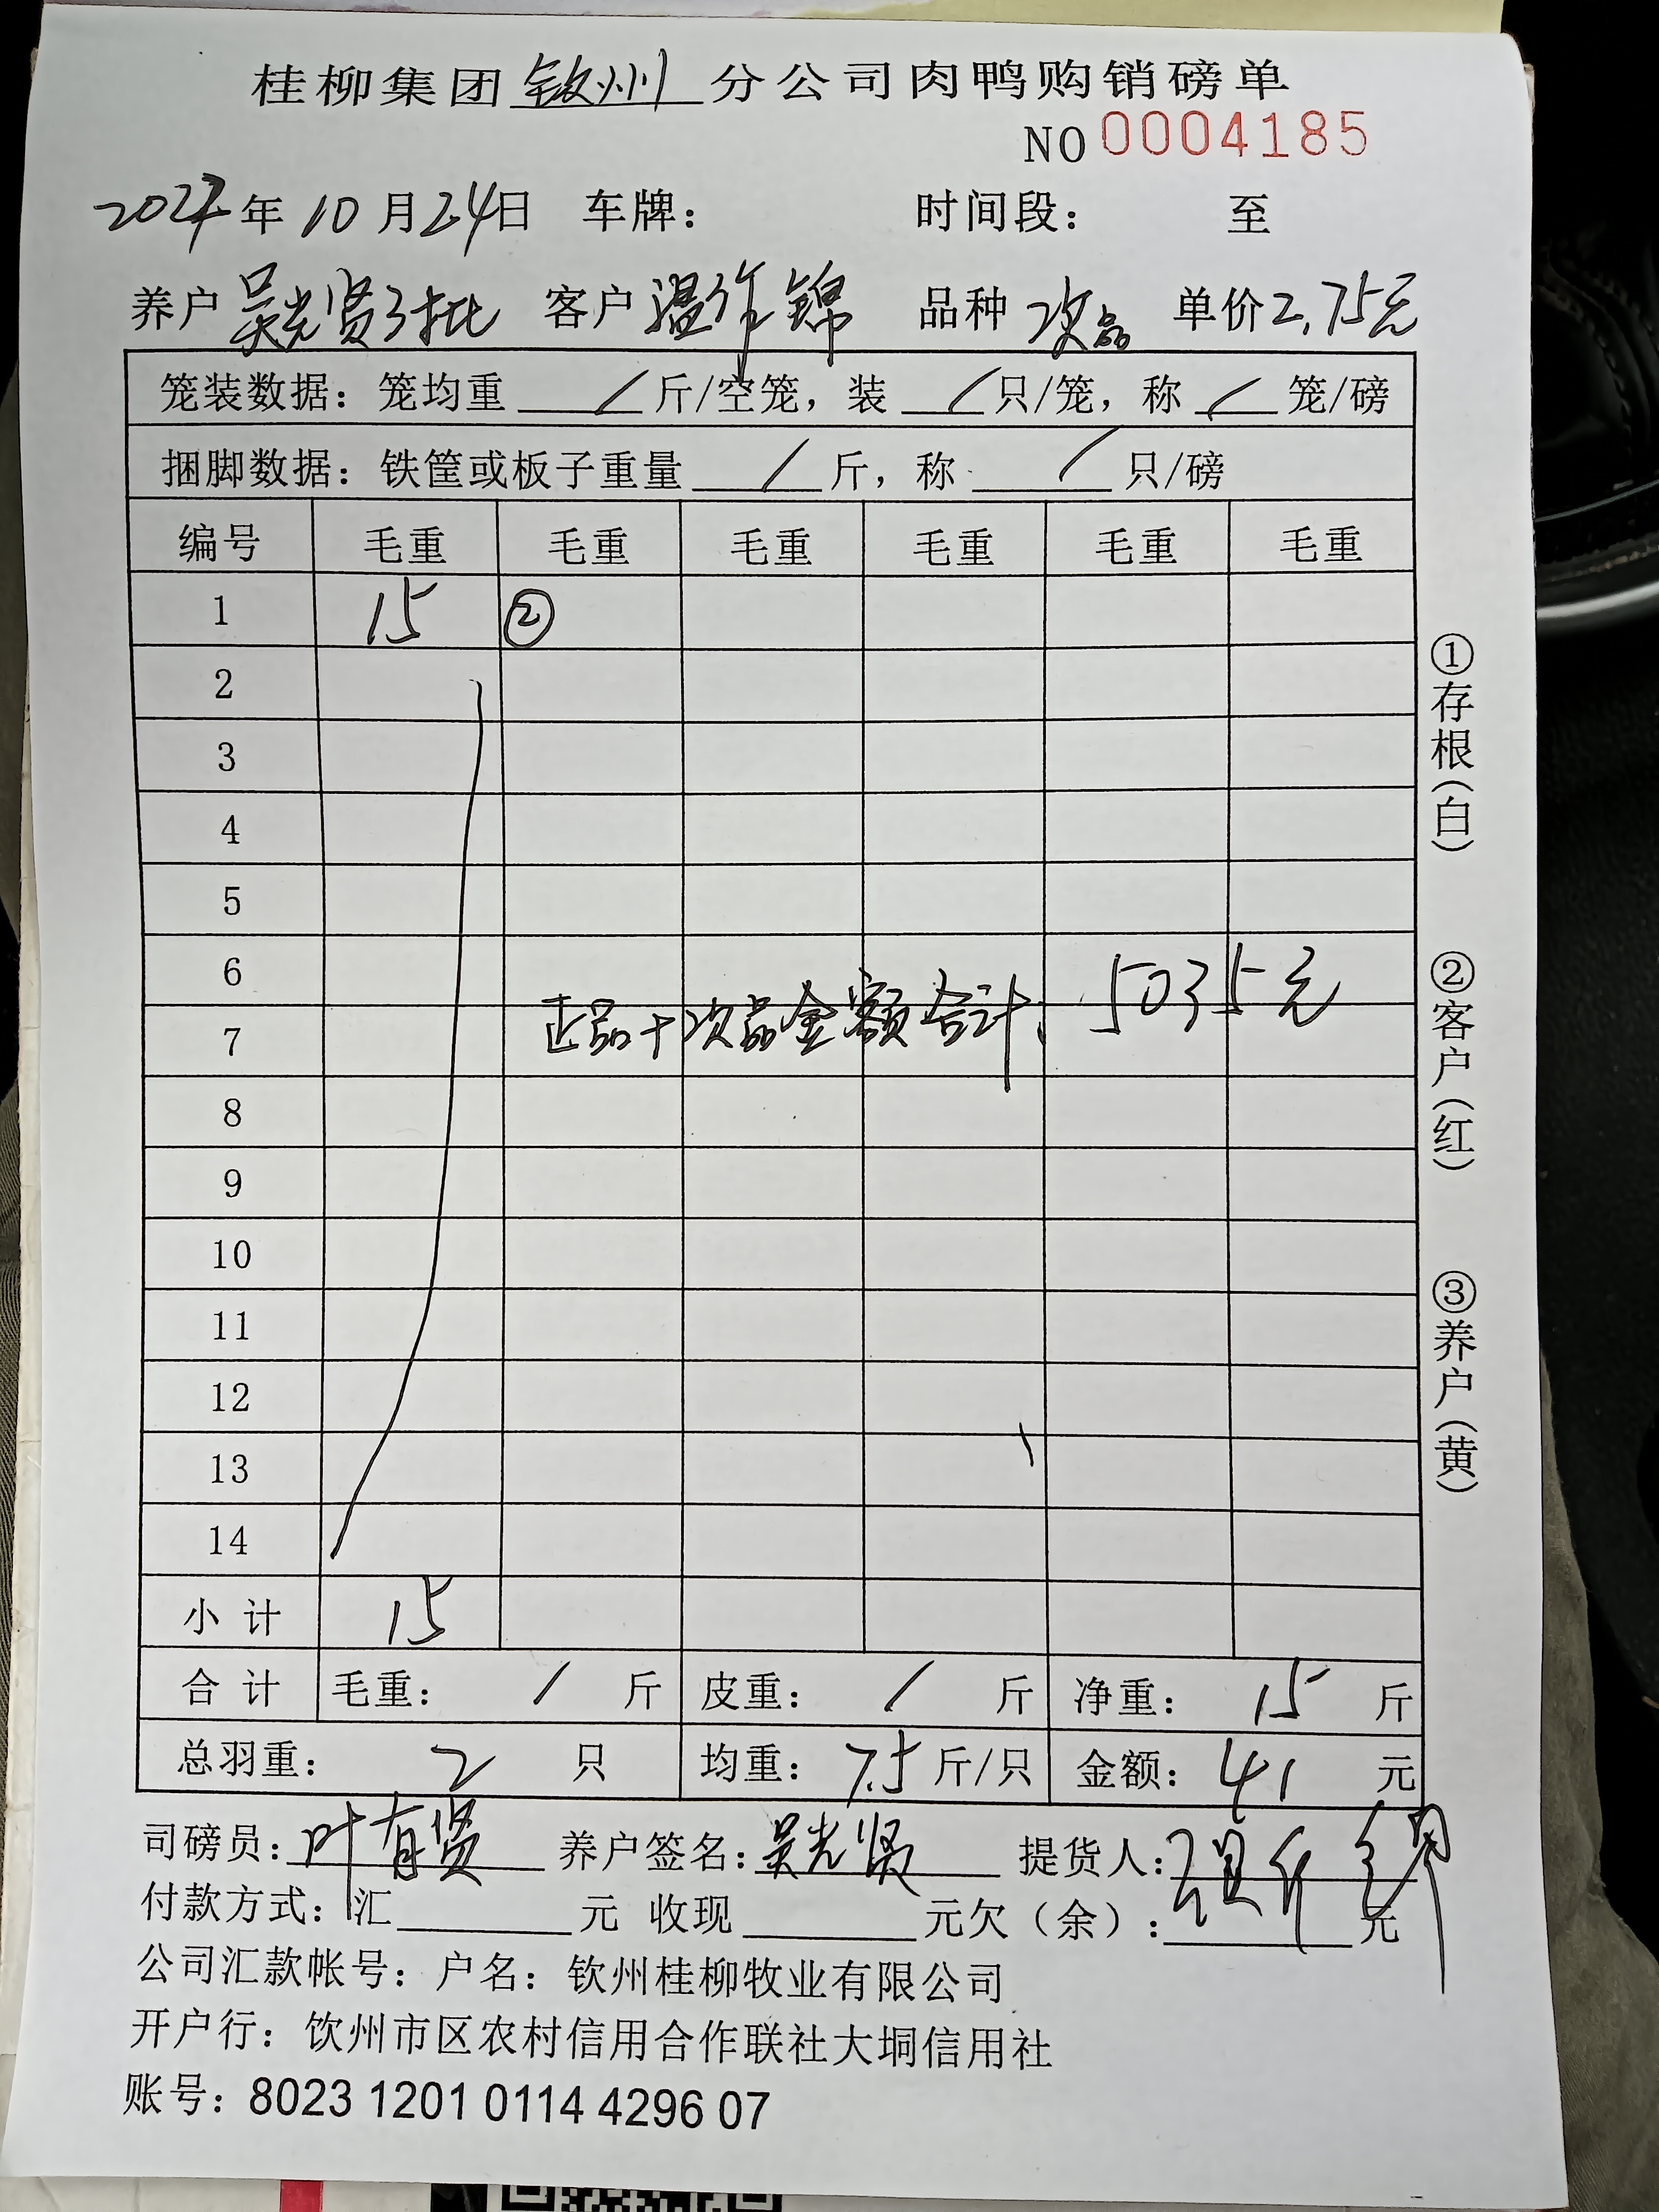 桂柳集团 钦州 分公司肉鸭购销磅单
NO 0004185
2024年 10 月 24日 车牌： 时间段： 至
养户 吴光贤3批 客户 温作锦 品种 次品 单价 2.75元
笼装数据：笼均重 / 斤/空笼，装 / 只/笼，称 / 笼/磅
捆脚数据：铁筐或板子重量 / 斤，称 / 只/磅
编号 毛重 毛重 毛重 毛重 毛重 毛重
1 15 ②
2
3
4
5
6
7
正品+次品金额合计：5035元
8
9
10
11
12
13
14
小计 15
合计 毛重： / 斤 皮重： / 斤 净重： 15 斤
总羽重： 2 只 均重： 7.5 斤/只 金额： 41 元
司磅员：叶有贤 养户签名：吴光贤 提货人：温作锦
付款方式：汇 元 收现 元欠（余）： 元
公司汇款帐号：户名：钦州桂柳牧业有限公司
开户行：钦州市区农村信用合作联社大垌信用社
账号：8023 1201 0114 4296 07
①存根（白）
②客户（红）
③养户（黄）